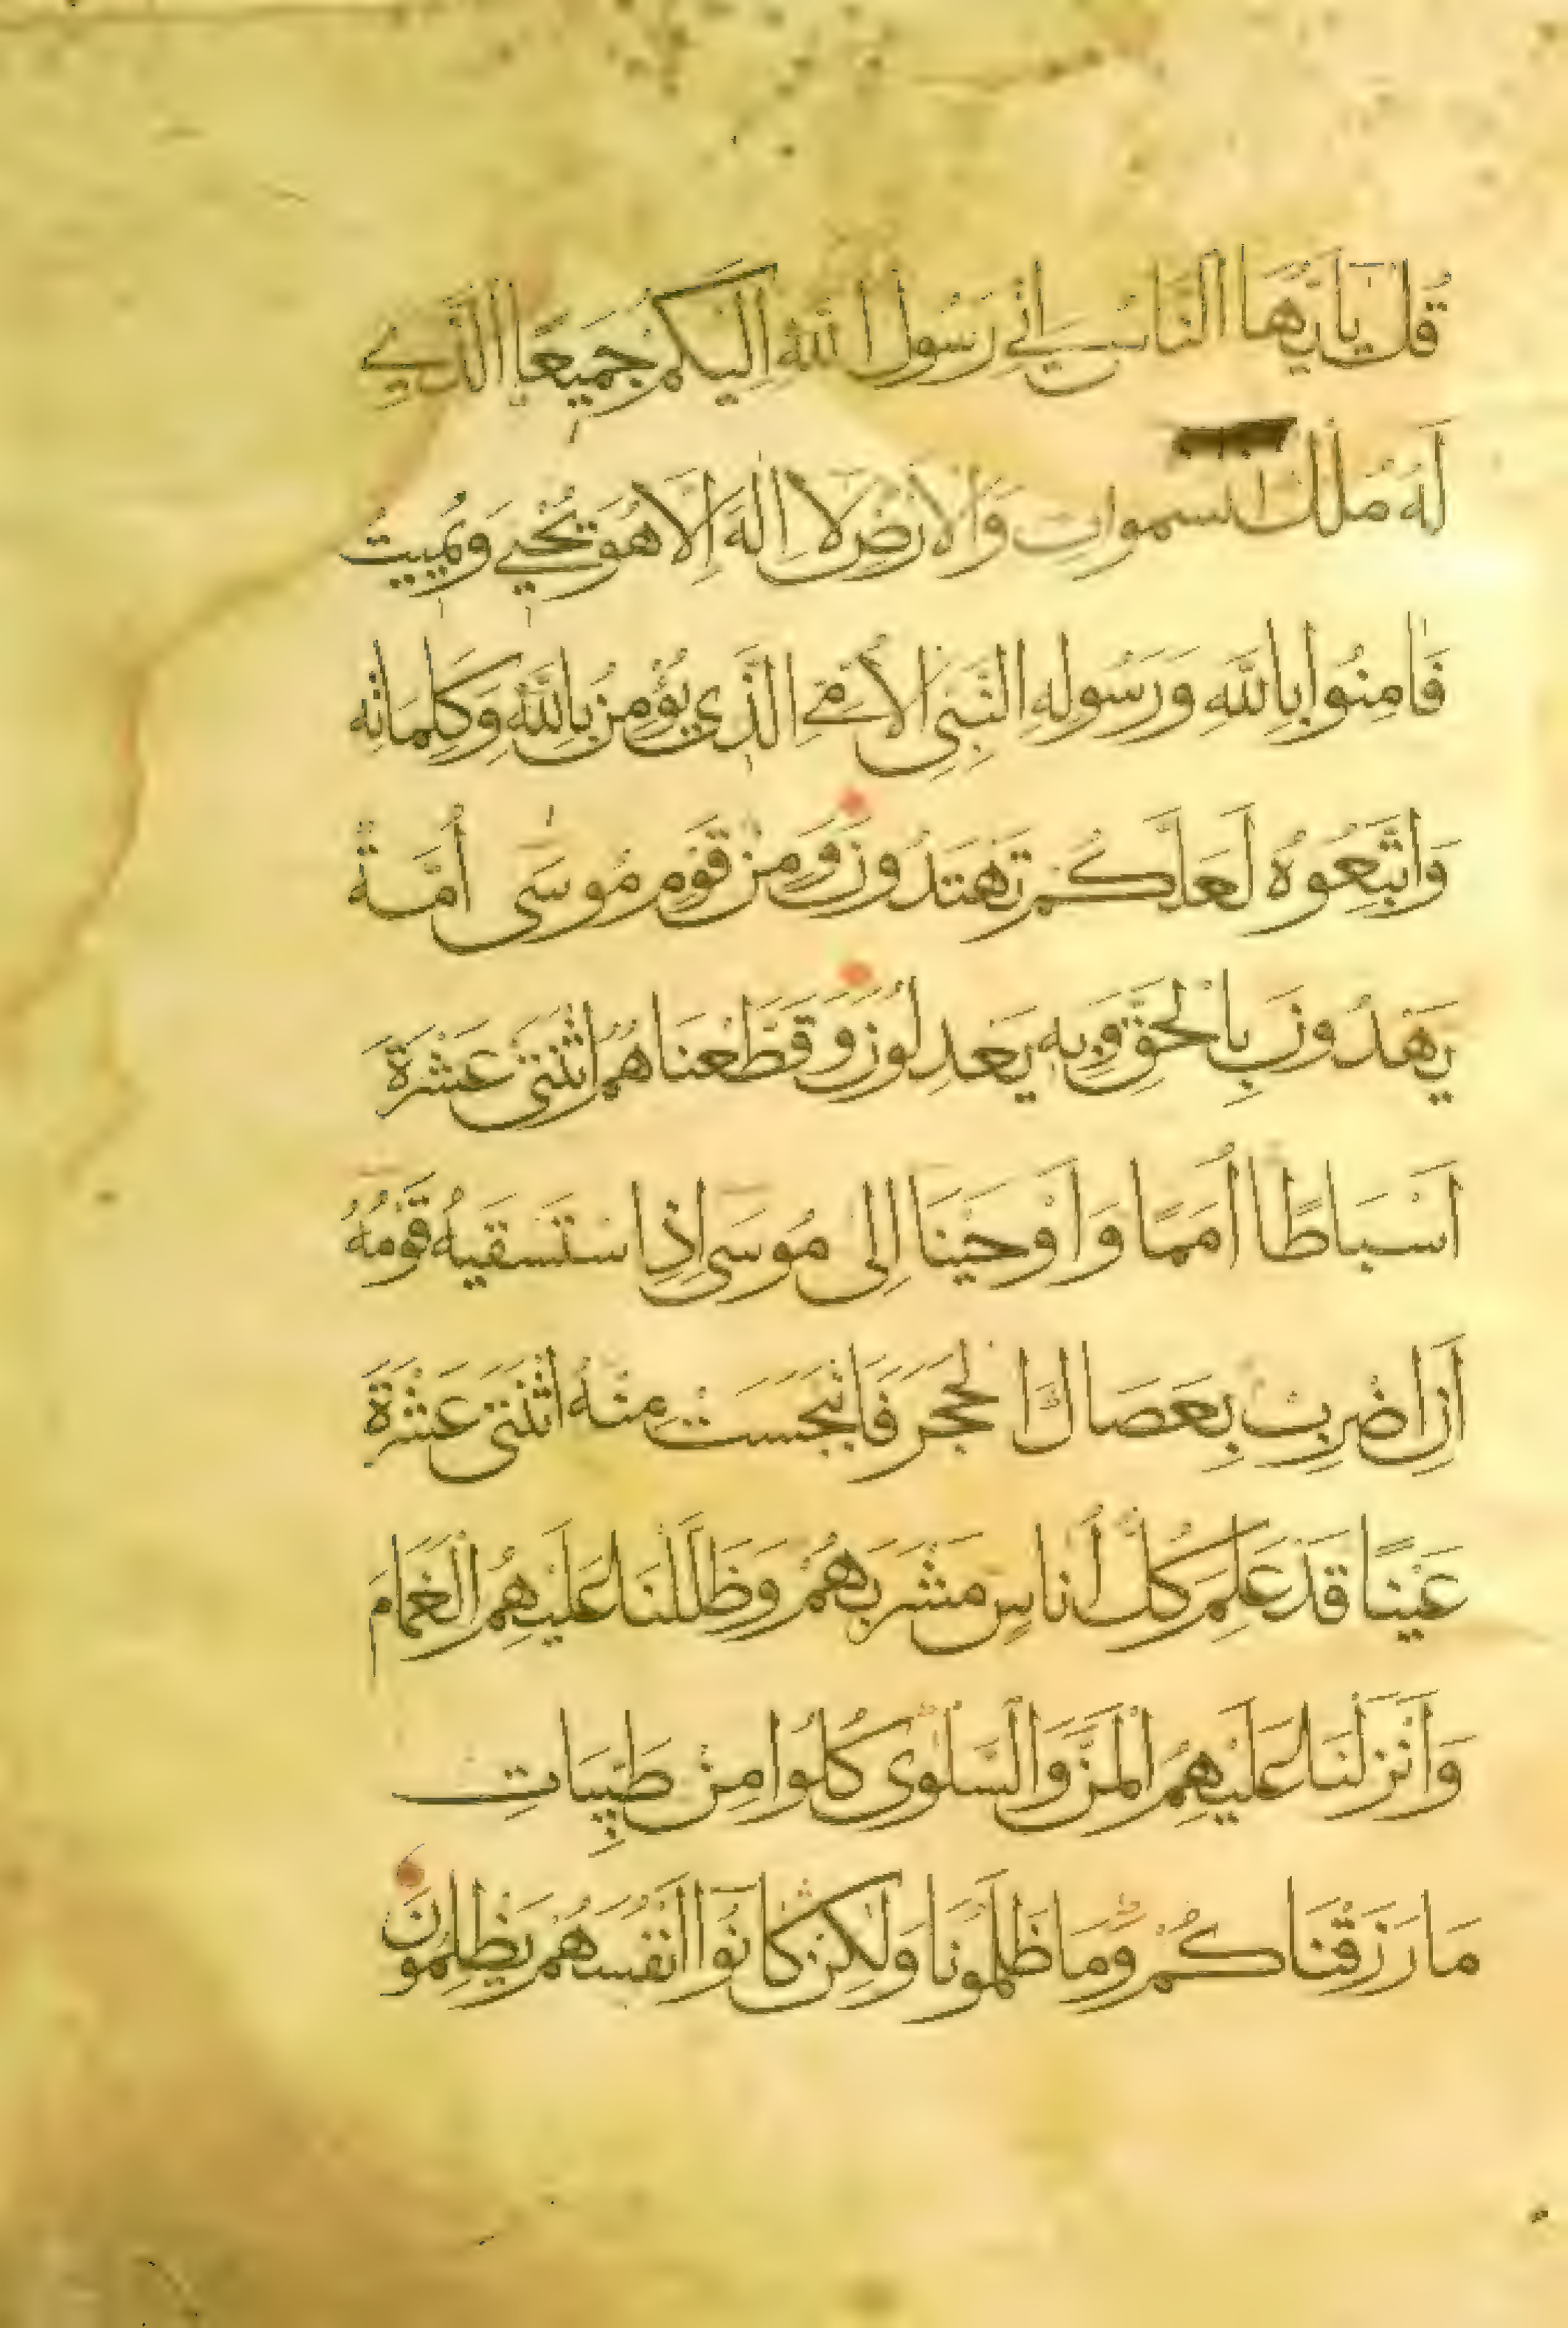 قُل يَا يُّهَا النَّاسُ اِنّي رَسُول اللهِ اِلَيكُم جَمِيعًا الَّذِي
لَهُ مُلكُ السموات وَالاَرضِ لاَ اِلهَ اِلاَّ هُوَ يُحيِي وَيُمِيتُ
فَامِنُوا بِاللهِ وَرَسُولِهِ النَّبِيِّ الاُمِّيِّ الَّذِي يُؤمِنُ بِاللهِ وَكَلِمَاتِه
وَاتَّبِعُوهُ لَعَلَّكُم تَهتَدُونَ وَمِن قَومِ مُوسَى اُمَّةٌ
يَهدُونَ بِالحَقِّ وَبِهِ يَعدِلُونَ وَقَطَّعنَاهُمُ اثنَتَي عَشرَةَ
اَسبَاطًا اُمَمًا وَاَوحَينَا اِلى مُوسَى اِذِ استَسقَيهُ قَومُهُ
اَنِ اضرِب بِعَصَاكَ الحَجَرَ فَانبَجَسَت مِنهُ اثنَتَي عَشرَةَ
عَينًا قَد عَلِمَ كُلُّ اُنَاسٍ مَشرَبَهُم وَظَلَّلنَا عَلَيهِمُ الغَمَامَ
وَاَنزَلنَا عَلَيهِمُ المَنَّ وَالسَّلوى كُلُوا مِن طَيِّبَاتِ
مَا رَزَقنَاكُم وَمَا ظَلَمُونَا وَلكِن كَانُوا اَنفُسَهُم يَظلِمُونَ